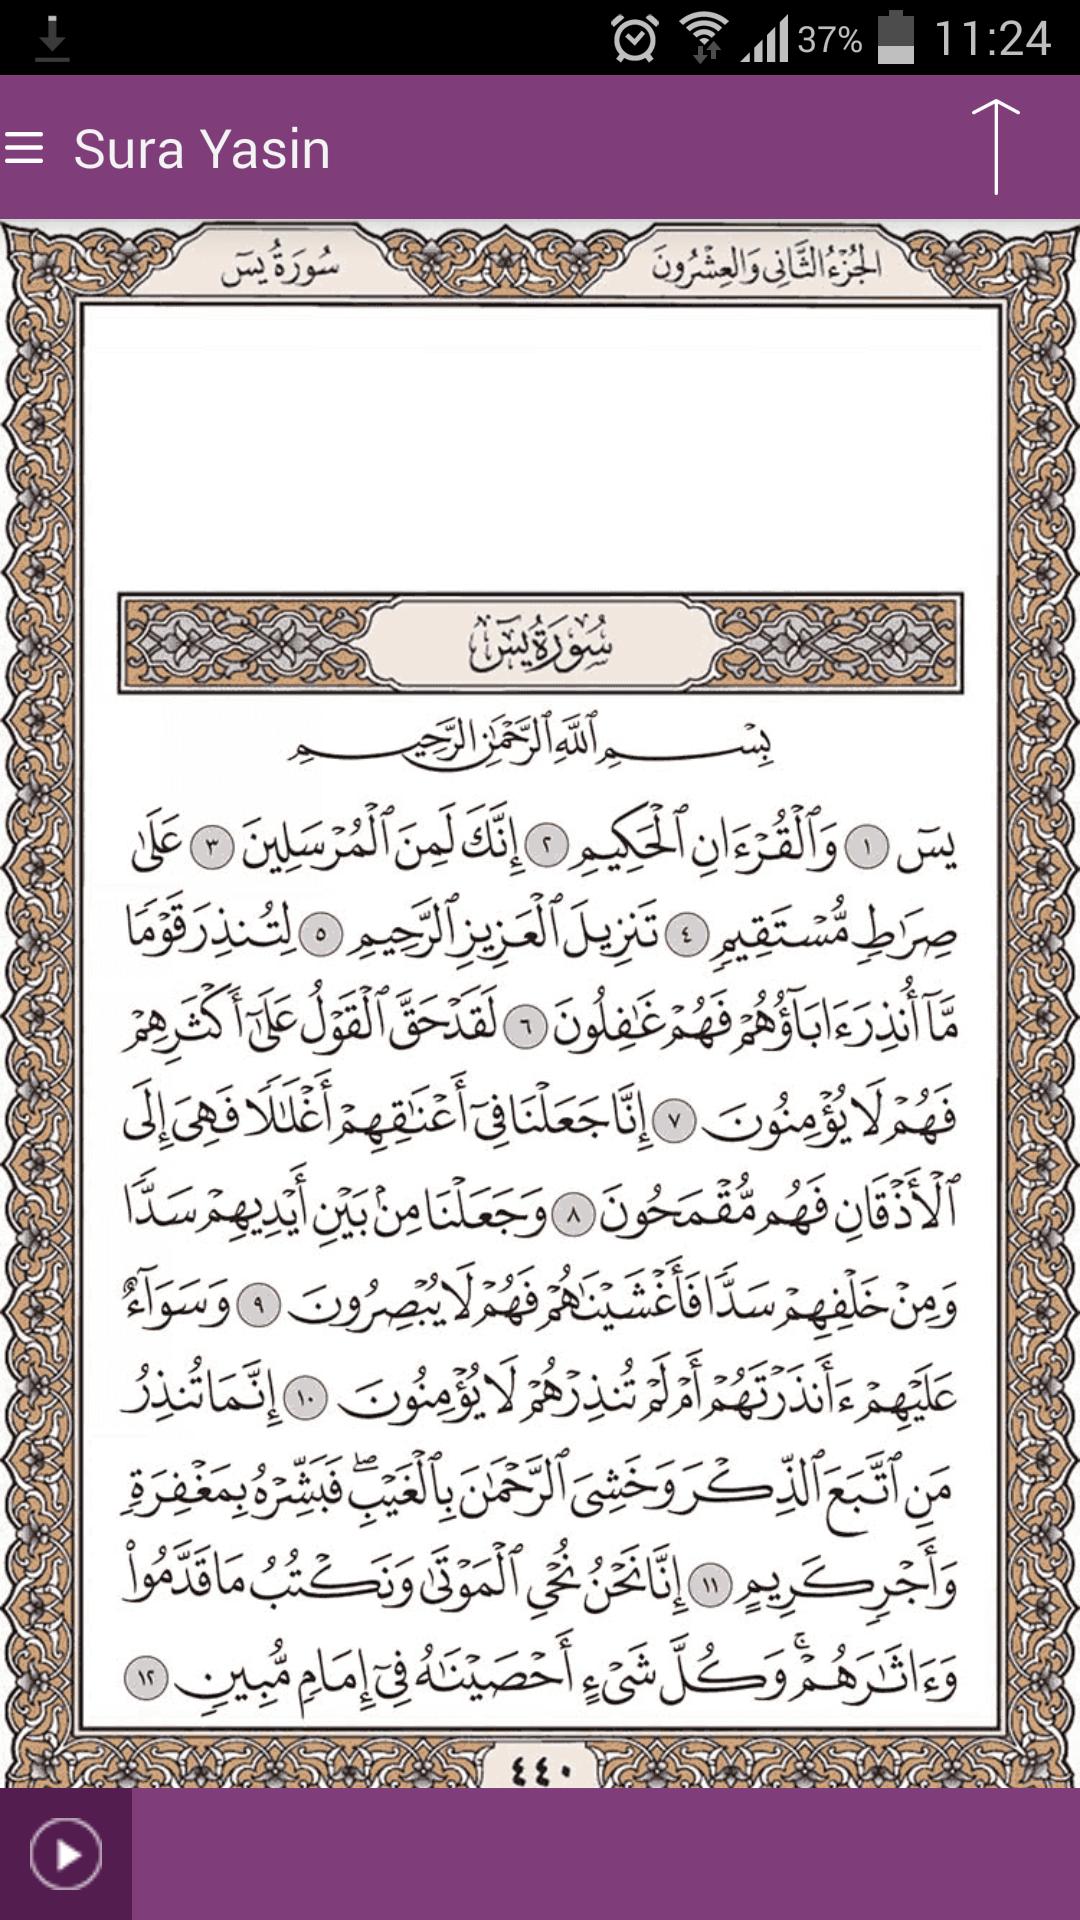 37% 11:24
Sura Yasin
الجُزْءُ الثَّانِي وَالعِشْرُونَ سُورَةُ يسٓ
سُورَةُ يسٓ
بِسْمِ ٱللَّهِ ٱلرَّحْمَٰنِ ٱلرَّحِيمِ
يسٓ ١ وَٱلْقُرْءَانِ ٱلْحَكِيمِ ٢ إِنَّكَ لَمِنَ ٱلْمُرْسَلِينَ ٣ عَلَىٰ
صِرَٰطٍ مُّسْتَقِيمٍ ٤ تَنزِيلَ ٱلْعَزِيزِ ٱلرَّحِيمِ ٥ لِتُنذِرَ قَوْمًا
مَّآ أُنذِرَ ءَابَآؤُهُمْ فَهُمْ غَٰفِلُونَ ٦ لَقَدْ حَقَّ ٱلْقَوْلُ عَلَىٰٓ أَكْثَرِهِمْ
فَهُمْ لَا يُؤْمِنُونَ ٧ إِنَّا جَعَلْنَا فِىٓ أَعْنَٰقِهِمْ أَغْلَٰلًا فَهِىَ إِلَى
ٱلْأَذْقَانِ فَهُم مُّقْمَحُونَ ٨ وَجَعَلْنَا مِنۢ بَيْنِ أَيْدِيهِمْ سَدًّا
وَمِنْ خَلْفِهِمْ سَدًّا فَأَغْشَيْنَٰهُمْ فَهُمْ لَا يُبْصِرُونَ ٩ وَسَوَآءٌ
عَلَيْهِمْ ءَأَنذَرْتَهُمْ أَمْ لَمْ تُنذِرْهُمْ لَا يُؤْمِنُونَ ١٠ إِنَّمَا تُنذِرُ
مَنِ ٱتَّبَعَ ٱلذِّكْرَ وَخَشِىَ ٱلرَّحْمَٰنَ بِٱلْغَيْبِ ۖ فَبَشِّرْهُ بِمَغْفِرَةٍ
وَأَجْرٍ كَرِيمٍ ١١ إِنَّا نَحْنُ نُحْىِ ٱلْمَوْتَىٰ وَنَكْتُبُ مَا قَدَّمُوا۟
وَءَاثَٰرَهُمْ ۚ وَكُلَّ شَىْءٍ أَحْصَيْنَٰهُ فِىٓ إِمَامٍ مُّبِينٍ ١٢
٤٤٠